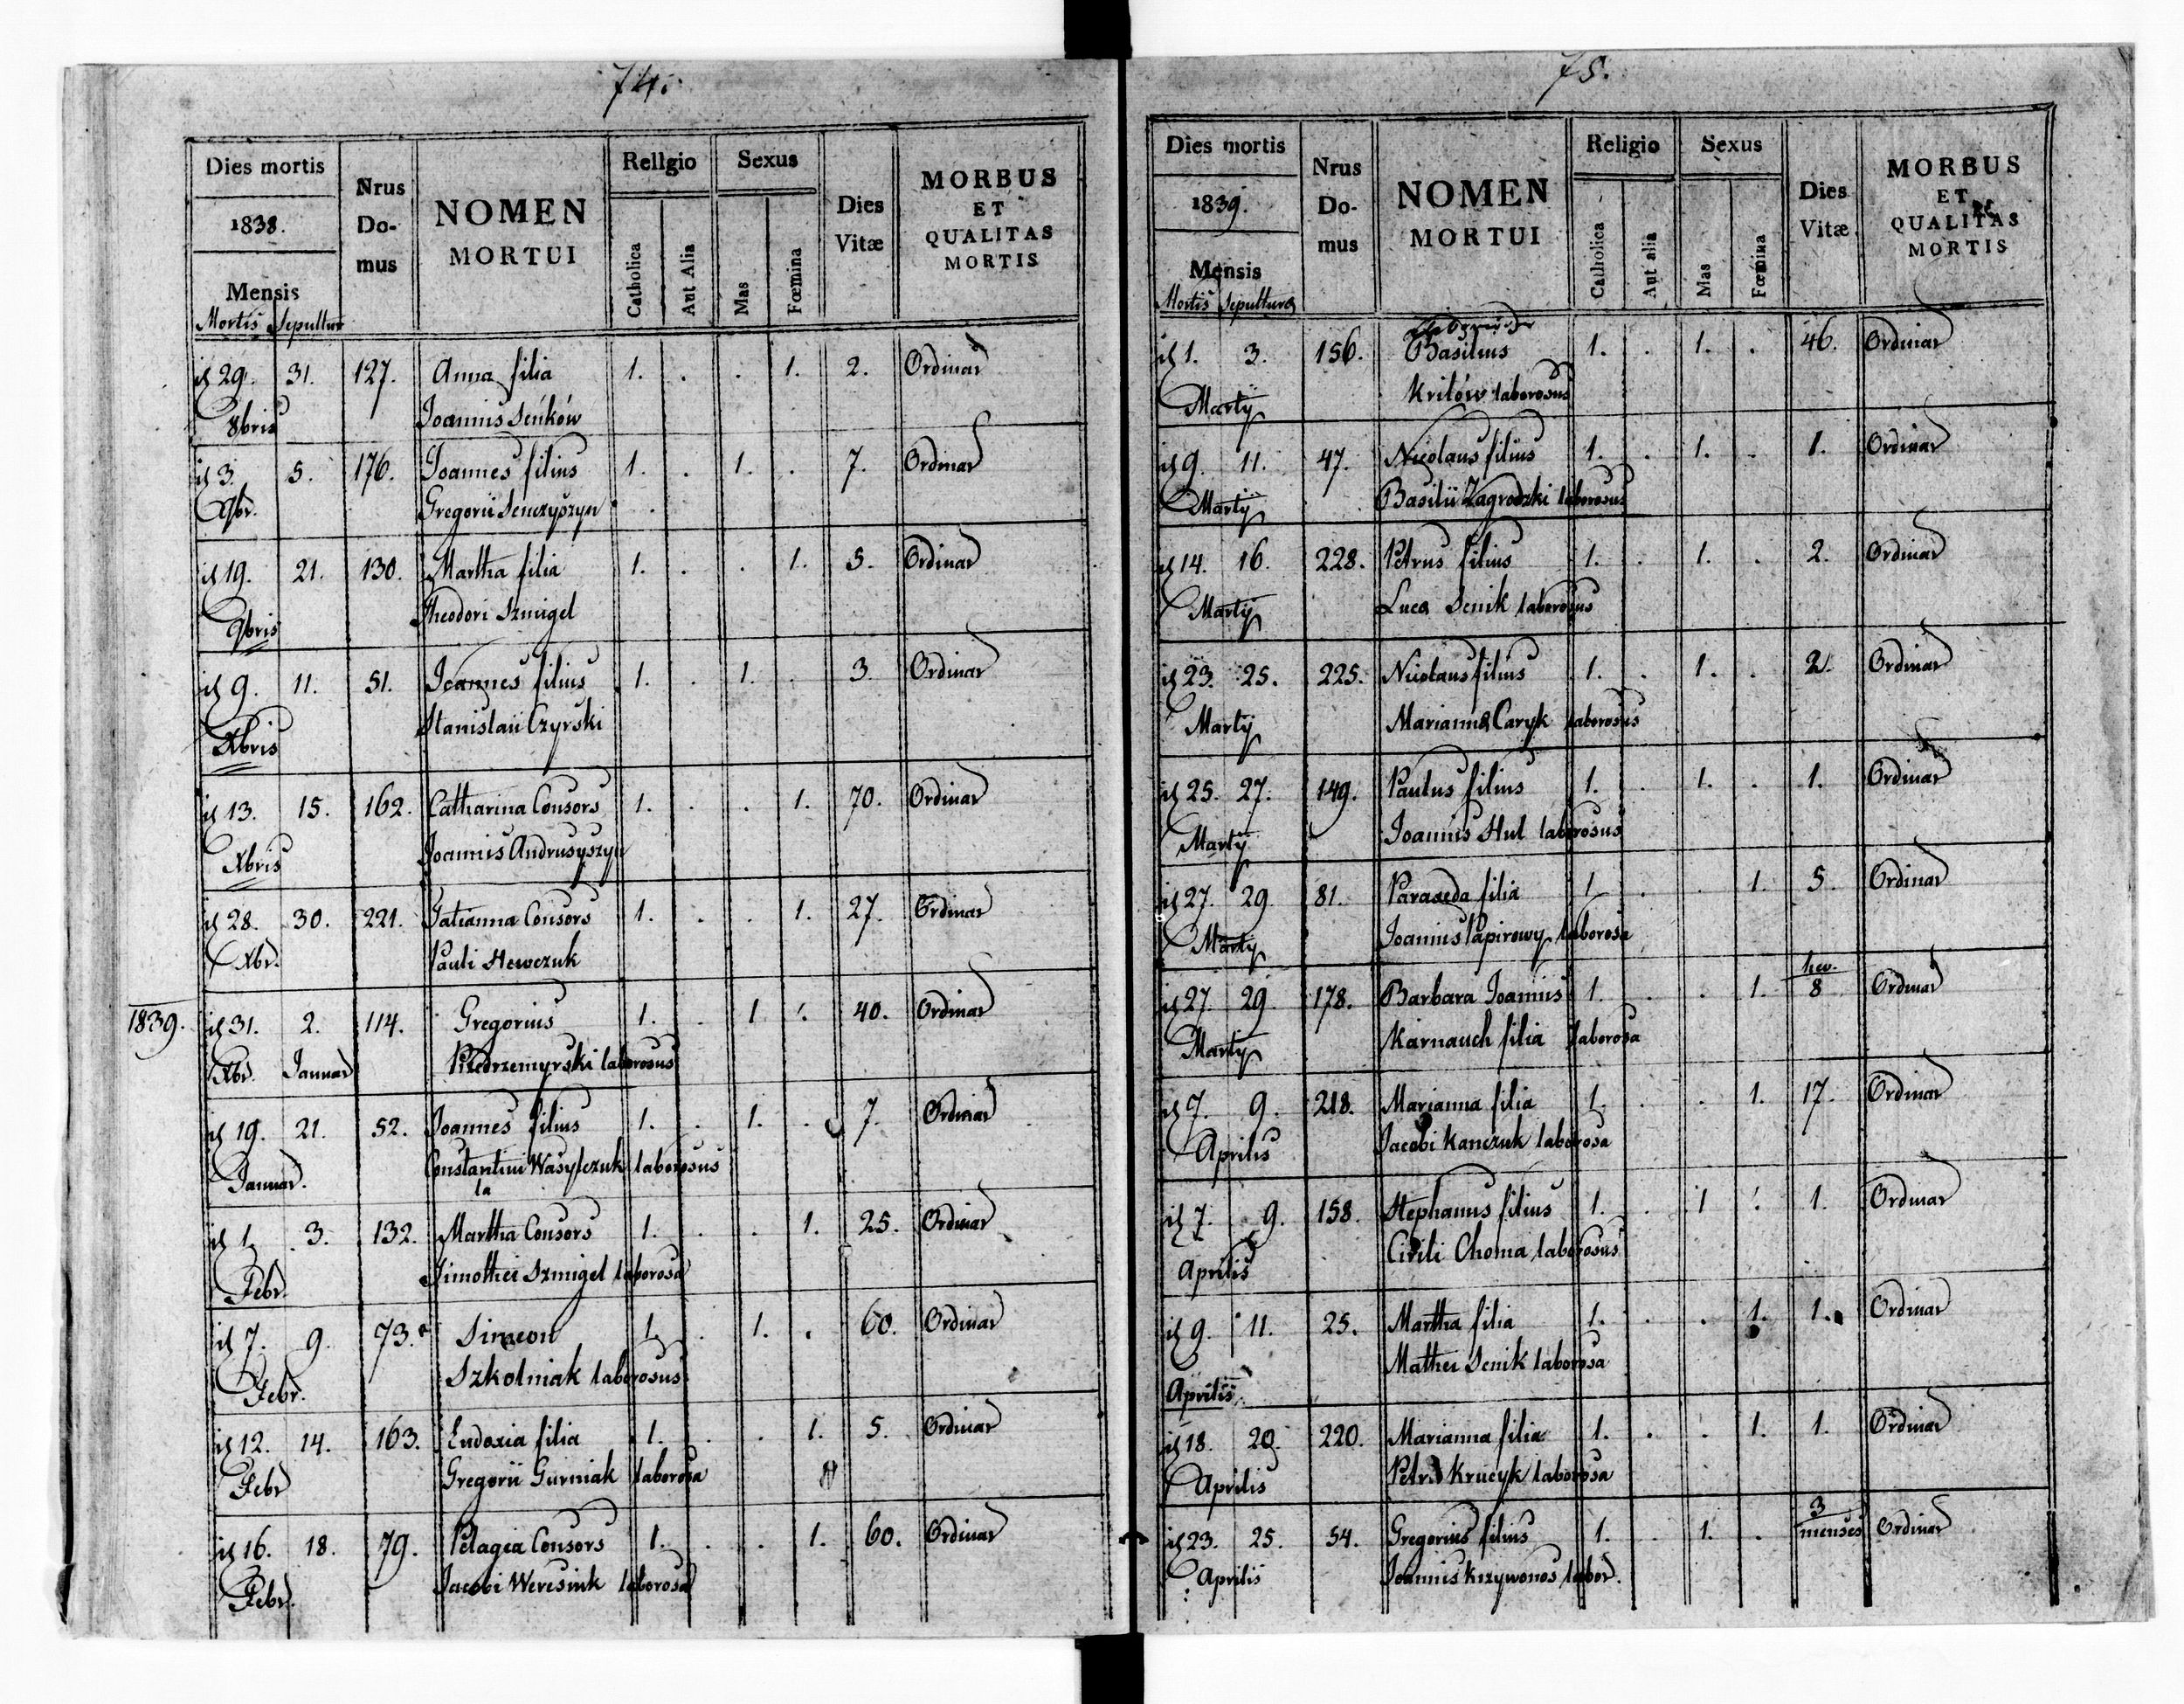 74.
Dies mortis
1838.
Mensis
Mortis Sepultur
Nrus Do- mus
NOMEN MORTUI
Religio
Catholica Aut Alia
Sexus
Mas Fœmina
Dies Vitæ
MORBUS ET QUALITAS MORTIS
29. 31. 127. Anna filia 1. . . 1. 2. Ordinar
8bris Joannis Seńków
3. 5. 176. Joannes filius 1. . 1. . 7. Ordinar
9br. Gregorii Senczyszyn
19. 21. 130. Martha filia 1. . . 1. 5. Ordinar
9bris Theodori Szmigel
9. 11. 51. Joannes filius 1. . 1. . 3. Ordinar
Xbris Stanislaii Czyrski
13. 15. 162. Catharina Consors 1. . . 1. 70. Ordinar
Xbris Joannis Andrusyszyn
28. 30. 221. Tatianna Consors 1. . . 1. 27. Ordinar
Xbr. Pauli Hewczuk
1839. 31. 2. 114. Gregorius 1. . 1 . 40. Ordinar
Xbr. Januar Piedrzemyrski laborosus
19. 21. 52. Joannes filius 1. . 1. . 7. Ordinar
Januar. Constantini Wasylczuk laborosus
la
1. 3. 132. Martha Consors 1. . . 1. 25. Ordinar
Febr. Timothei Szmigel laborosa
7. 9. 73. Simeon 1. . 1. . 60. Ordinar
Febr. Szkolniak laborosus
12. 14. 163. Eudoxia filia 1. . . 1. 5. Ordinar
Febr Gregorii Gurniak laborosa
16. 18. 79. Pelagia Consors 1. . . 1. 60. Ordinar
Febr. Jacobi Weresiuk laborosa
75.
Dies mortis
1839.
Mensis
Mortis Sepultura
Nrus Do- mus
NOMEN MORTUI
Religio
Catholica Aut alia
Sexus
Mas Fœmina
Dies Vitæ
MORBUS ET QUALITAS MORTIS
1. 3. 156. Basilius 1. . 1. . 46. Ordinar
Martÿ Kriłów laborosus
9. 11. 47. Nicolaus filius 1. . 1. . 1. Ordinar
Martÿ Basilii Zagrodzki laborosus
14. 16. 228. Petrus filius 1. . 1. . 2. Ordinar
Martÿ Luca Senik laborosus
23. 25. 225. Nicolaus filius 1. . 1. . 2. Ordinar
Martÿ Marianna Caryk laborosus
25. 27. 149. Paulus filius 1. . 1. . 1. Ordinar
Martÿ Joannis Hul laborosus
27. 29 81. Paraxeda filia 1. . . 1. 5. Ordinar
Martÿ Joannis Papirowy laborosa
27. 29 178. Barbara Joannis 1. . . 1. 8 Ordinar
Martÿ Karnauch filia laborosa
7. 9. 218. Marianna filia 1. . . 1. 17. Ordinar
Aprilis Jacobi Kanczuk laborosa
7. 9. 158. Stephanus filius 1. . 1 . 1. Ordinar
Aprilis Cirili Choma laborosus
9. 11. 25. Martha filia 1. . . 1. 1. Ordinar
Aprilis Mathei Senik laborosa
18. 20. 220. Marianna filia 1. . . 1. 1. Ordinar
Aprilis Petri Krucyk laborosa
23. 25. 54. Gregorius filius 1. . 1. . 3 menses Ordinar
Aprilis Joannis Krzywonos labor.